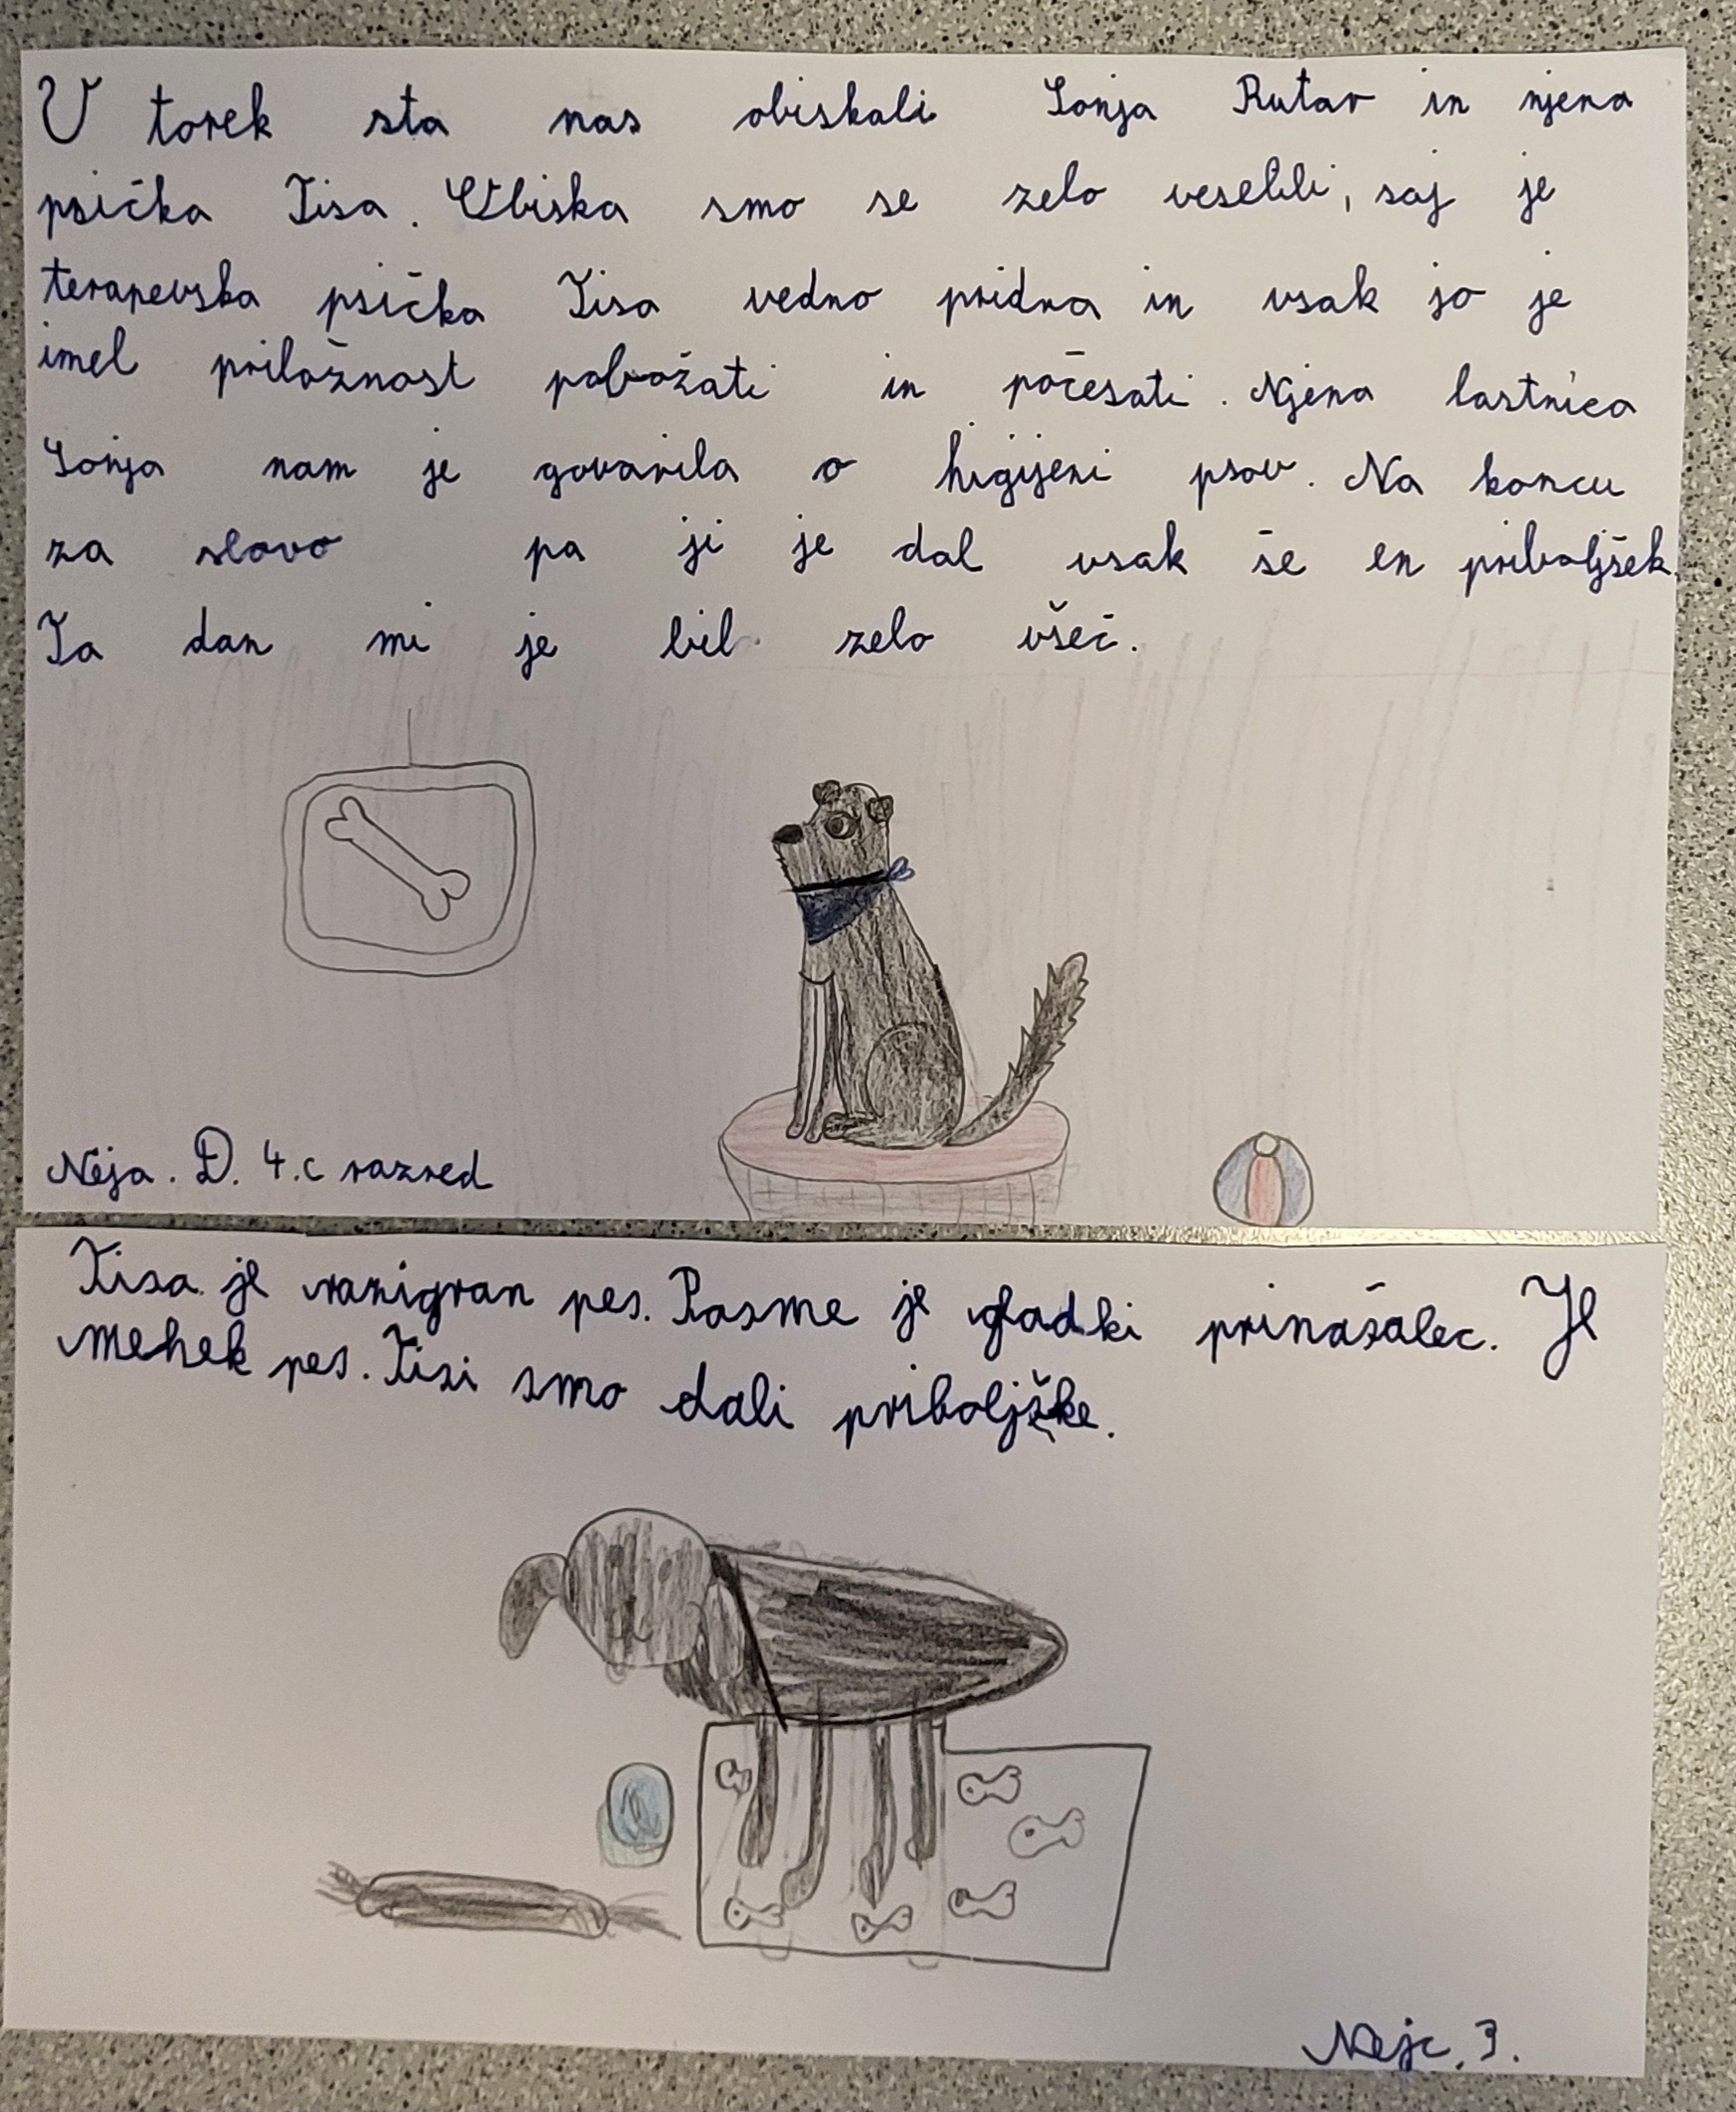 V torek sta nas obiskali Sonja Rutar in njena
psička Tisa. Obiska smo se zelo veselili, saj je
terapevska psička Tisa vedno pridna in vsak jo je
imel priložnost pobožati in počesati. Njena lastnica
Sonja nam je govorila o higijeni psov. Na koncu
za slovo pa ji je dal vsak še en priboljšek.
Ta dan mi je bil zelo všeč.
Neja. D. 4.c razred
Tisa je razigran pes. Pasme je gladki prinašalec. Je
mehek pes. Tisi smo dali priboljške.
Nejc. 3.